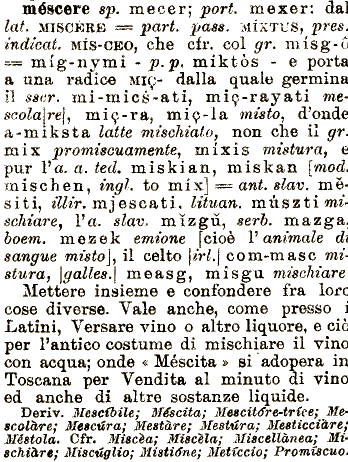 méscere sp. mecer; port. mexer: dal
lat. MISCÈRE = part. pass. MÍXTUS, pres.
indicat. MÍS-CEO, che cfr. col gr. mísg-ô
= míg-nymi - p. p. miktòs - e porta
a una radice MIÇ- dalla quale germina
il sscr. mi-micš-ati, miç-rayati me-
scola[re], miç-ra, miç-la misto, d'onde
a-miksta latte mischiato, non che il gr.
mix promiscuamente, míxis mistura, e
pur l'a. a. ted. miskian, miskan [mod.
mischen, ingl. to mix] = ant. slav. mě-
siti, illir. mjescati, lituan. múszti mi-
schiare, l'a. slav. mĭzgŭ, serb. mazga,
boem. mezek emione [cioè l'animale di
sangue misto], il celto [irl.] com-masc mi-
stura, [galles.] measg, misgu mischiare
Mettere insieme e confondere fra loro
cose diverse. Vale anche, come presso i
Latini, Versare vino o altro liquore, e ciò
per l'antico costume di mischiare il vino
con acqua; onde « Méscita » si adopera in
Toscana per Vendita al minuto di vino
ed anche di altre sostanze liquide.
Deriv. Mescíbile; Méscita; Mescitóre-tríce; Me-
scolàre; Mescúra; Mestàre; Mestúra; Mesticciàre;
Méstola. Cfr. Miscèa; Miscèla; Miscellànea; Mi-
schiàre; Miscúglio; Mistióne; Metíccio; Promiscuo.